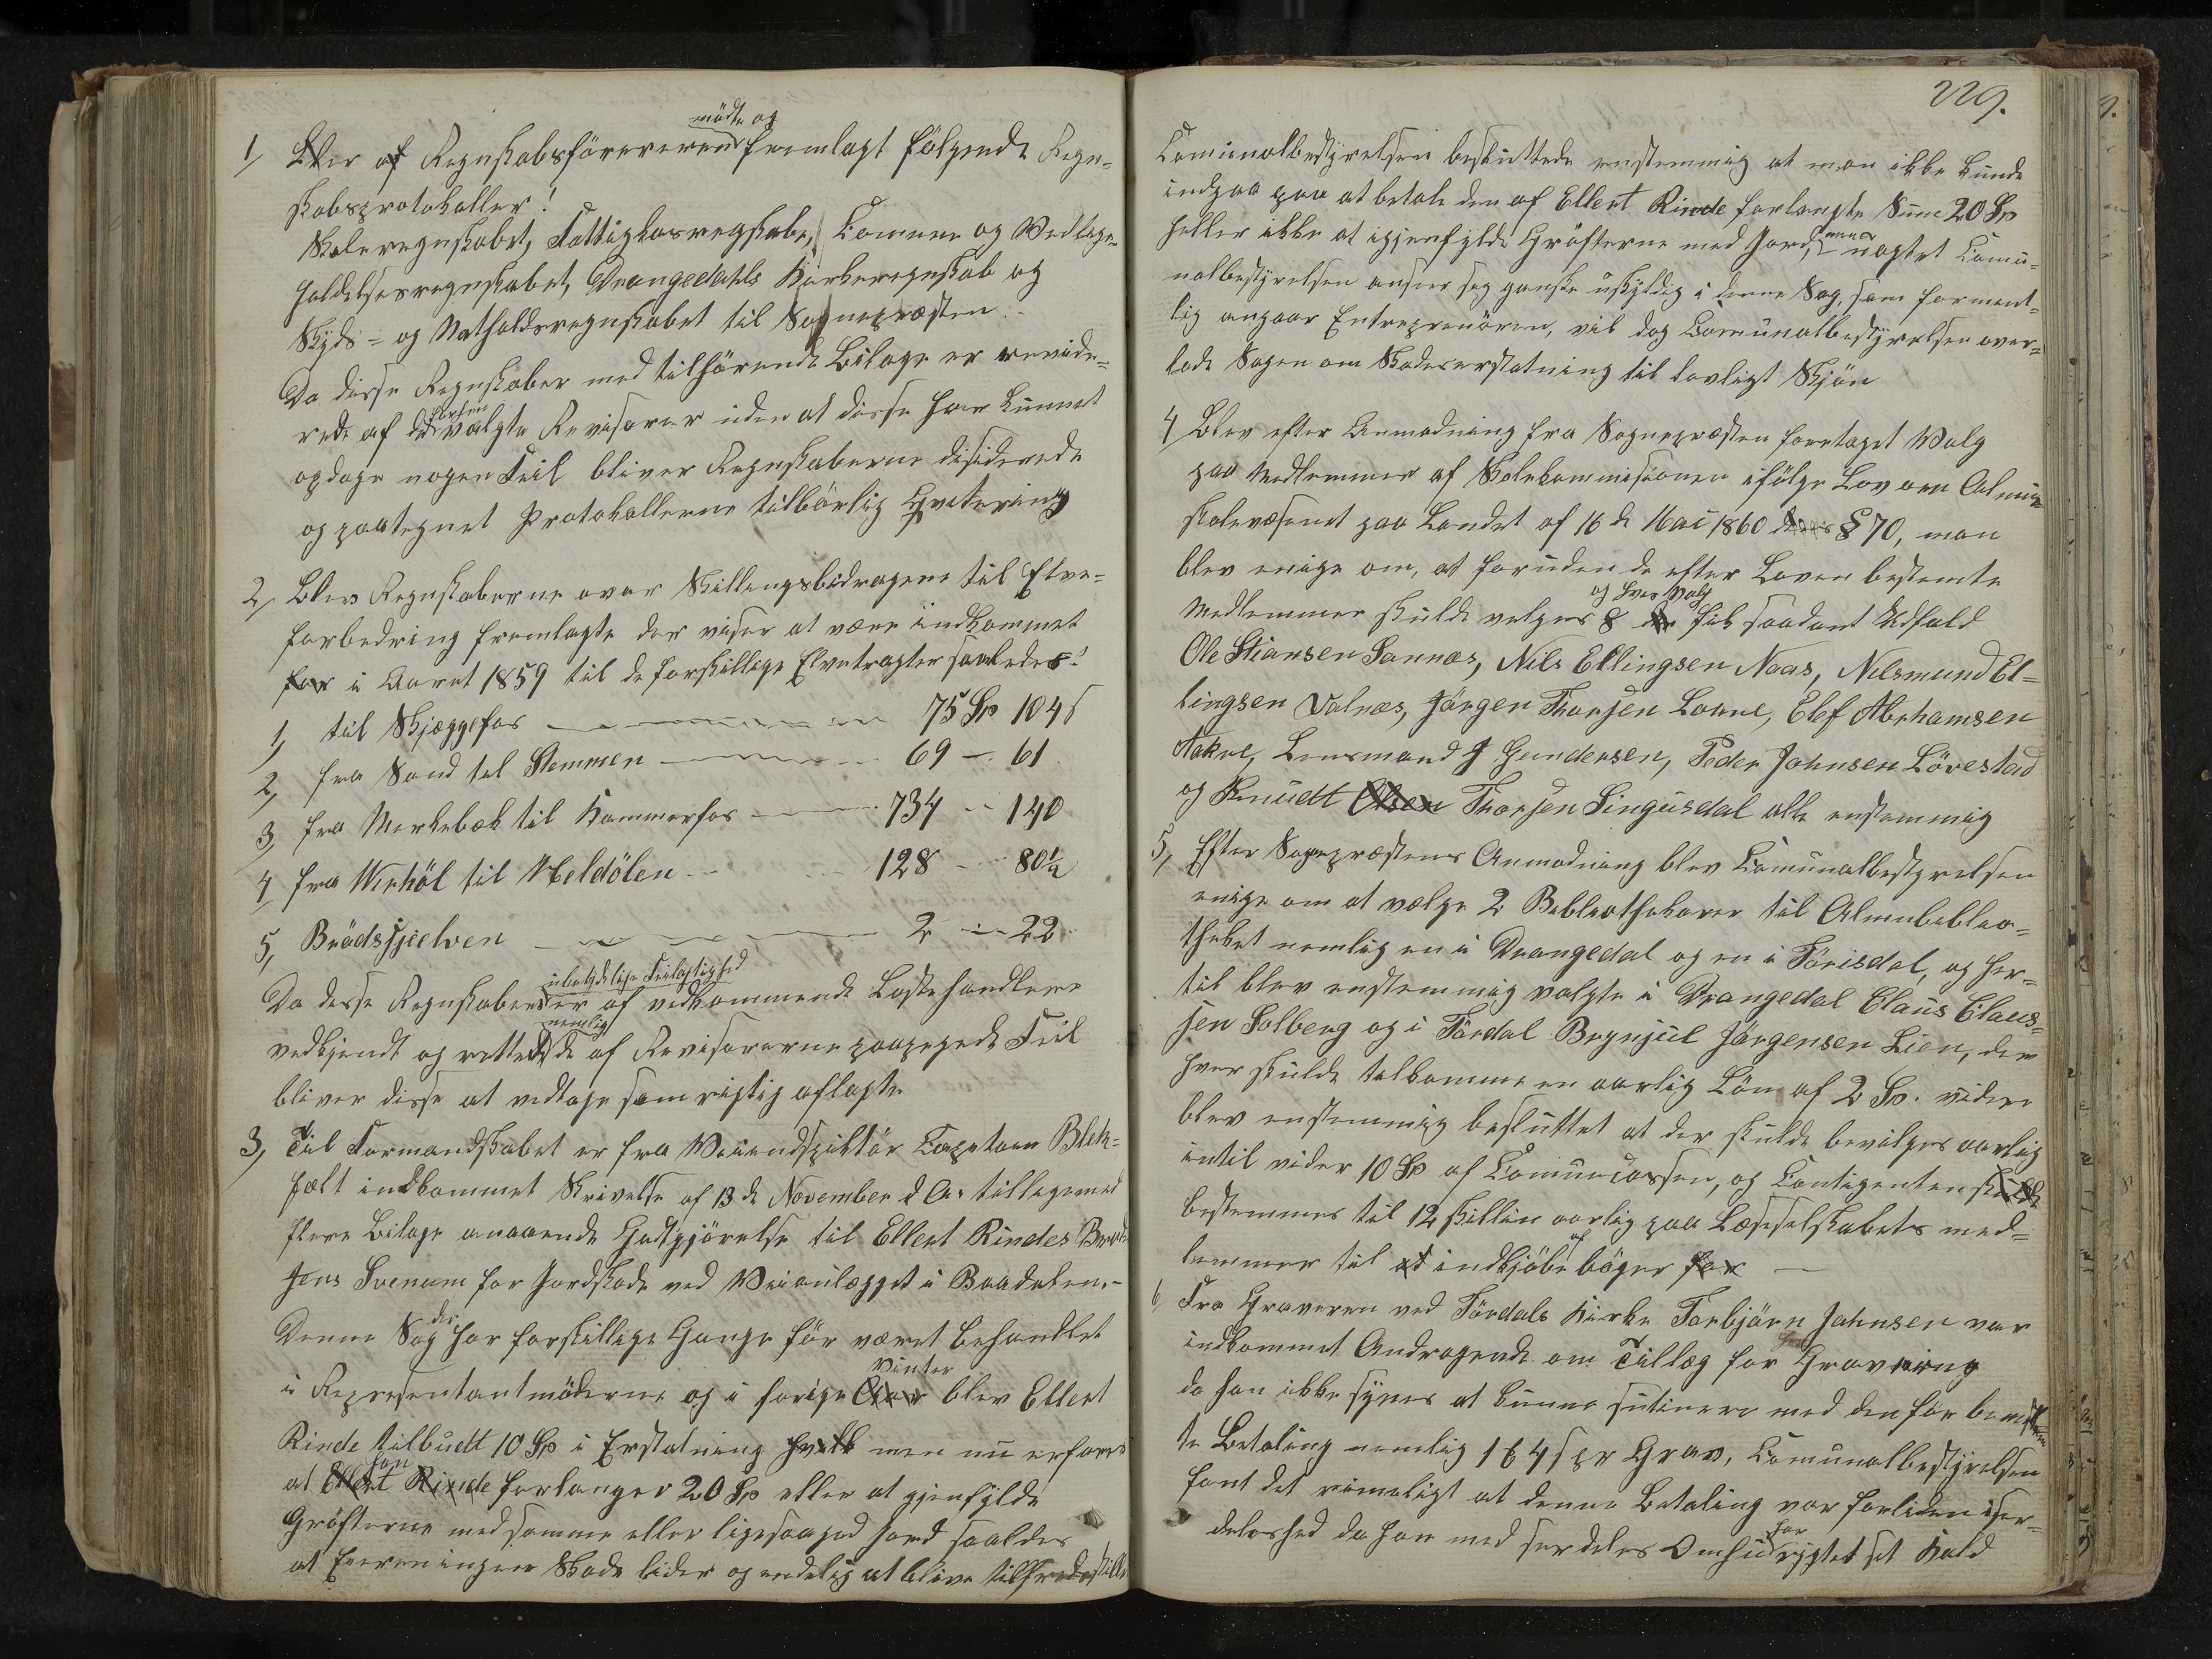 mödte og
1, Blev af Regnskabsföreren fremlagt fölgende Regn-
skabsprotokoller!
Skoleregnskabet, Fattigkasregnskabe, Comune og Vedlige-
holdelsesregnskabet, Drangedahls Kirkeregnskab og
Skyds- og Natholdsregnskabet til Sognepræsten.
Da disse Regnskaber med tilhörende Bilage er revide-
rede af de dertil valgte Revisorer uden at disse har kunnet
opdage nogen Feil bliver Regnskaberne disiderede
og paategnet Protokollerne tilbörlig Qvitering
2, Blev Regnskaberne over Skillingsbidragene til Elve-
forbedring fremlagte der viser at være indkommet
for i Aaret 1859 til de forskillige Elvetragter saaledes!
1, til Skjæggefos 75 Sp 104 s
2, fra Sand til Stemmen 69 - 61
3, fra Merkebæk til Kammerfos 734 - 140
4, fra Wirhöl til Heldölen 128 - 80½
5, Brödsjjelven 2 - 22
ubetydelige Feilagtighed
Da disse Regnskaber er af vedkommende Lastehandlere
nemlig
vedkjendt og rettet de af Revisorerne paapegede Feil
bliver disse at vedtage som rigtig aflagte
3, Til Formandskabet er fra Veiindspiktör Capetain Blek-
fælt indkommet Skrivelse af 13de November d A. tilligemed
flere Bilage angaaende Godtgjörelse til Ellert Rindes
Jens Svenum for Jordskade ved Veianlægget i Baadalen.-
der
Denne Sag har forskillige Gange för været behandlet
Vinter
i Representantmöderne og i forige Aar blev Ellert
Rinde tilbudt 10 Sp i Erstatning hvilk men nu erfares
han
at Ellert Rinde forlanger 20 Sp eller at gjenfylde
Gröfterne med samme eller ligesaagod Jord saaledes
at Eieren ingen Skade lider og endelig at blive tilfredsstille
229.
Comunalbestyrelsen besluttede enstemmig at man ikke kunde
indgaa paa at betale den af Ellert Rinde forlangte Sum 20 Sp
heller ikke at igjenfylde Gröfterne med Jord, uagtet Comu-
nalbestyrelsen anser seg ganske uskyldig i denne Sag, som forment-
lig angaar Entreprenören, vil dog Comunalbestyrelsen over-
lade Sagen om Skadeserstatning til lovligt Skjön
4 Blev efter Anmodning fra Sognepræsten foretaget Valg
paa Medlemmer af Skolekommisionen ifölge Lov om Almue
skolevæsenet paa Landet af 16de Mai 1860 § 70, man
blev enige om, at foruden de efter Loven bestemte
og hvis Valg
Medlemmer skulde velges 8 der fik saadant Udfald
Ole Stiansen Sannæs, Nils Ellingsen Naas, Nilsmund El-
lingsen Valnæs, Jörgen Thorsen Lonne, Elef Abrhamsen
Aakre, Lensmand J Gundersen, Peder Johnsen Lövestad
og Knudt Olsen Thorsen Lingusdal alle enstemmig
5, Efter Sognepræstens Anmodning blev Comunalbestyrelsen
enige om at vælge 2 Bebliothekarer til Almubeblio-
theket nemlig en i Drangedal og en i Törisdal, og her-
til blev enstemmig valgte i Drangedal Claus Claus-
sen Solberg og i Tördal Brynjul Jörgensen Lien, der
hver skulde tilkomme en aarlig Lön af 2 Sp. videre
blev enstemmig besluttet at der skulde bevilges aarlig
intil vider 10 Sp af Comuncassen, og Contigenten skulde
bestemmes til 12 skillin aarlig paa Læseselskabets med-
af
lemmer til at indkjöbe böger for
6, Fra Graveren ved Tördals Kirke Torbjörn Johnsen var
indkommet Andragende om Tillæg for Gravning
da han ikke synes at kunne sutinere med den för bevilge
te Betaling nemlig 1 64 s pr Grav, Comunalbestyrelsen
fant det rimeligt at denne Betaling var forliden iser-
har
deleshed da han med serdeles Omhu rögtet sit Kald